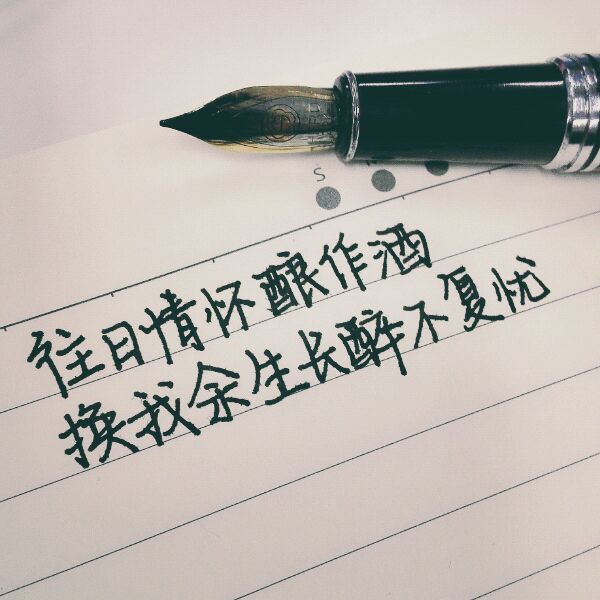 S
往日情怀酿作酒
换我余生长醉不复忧